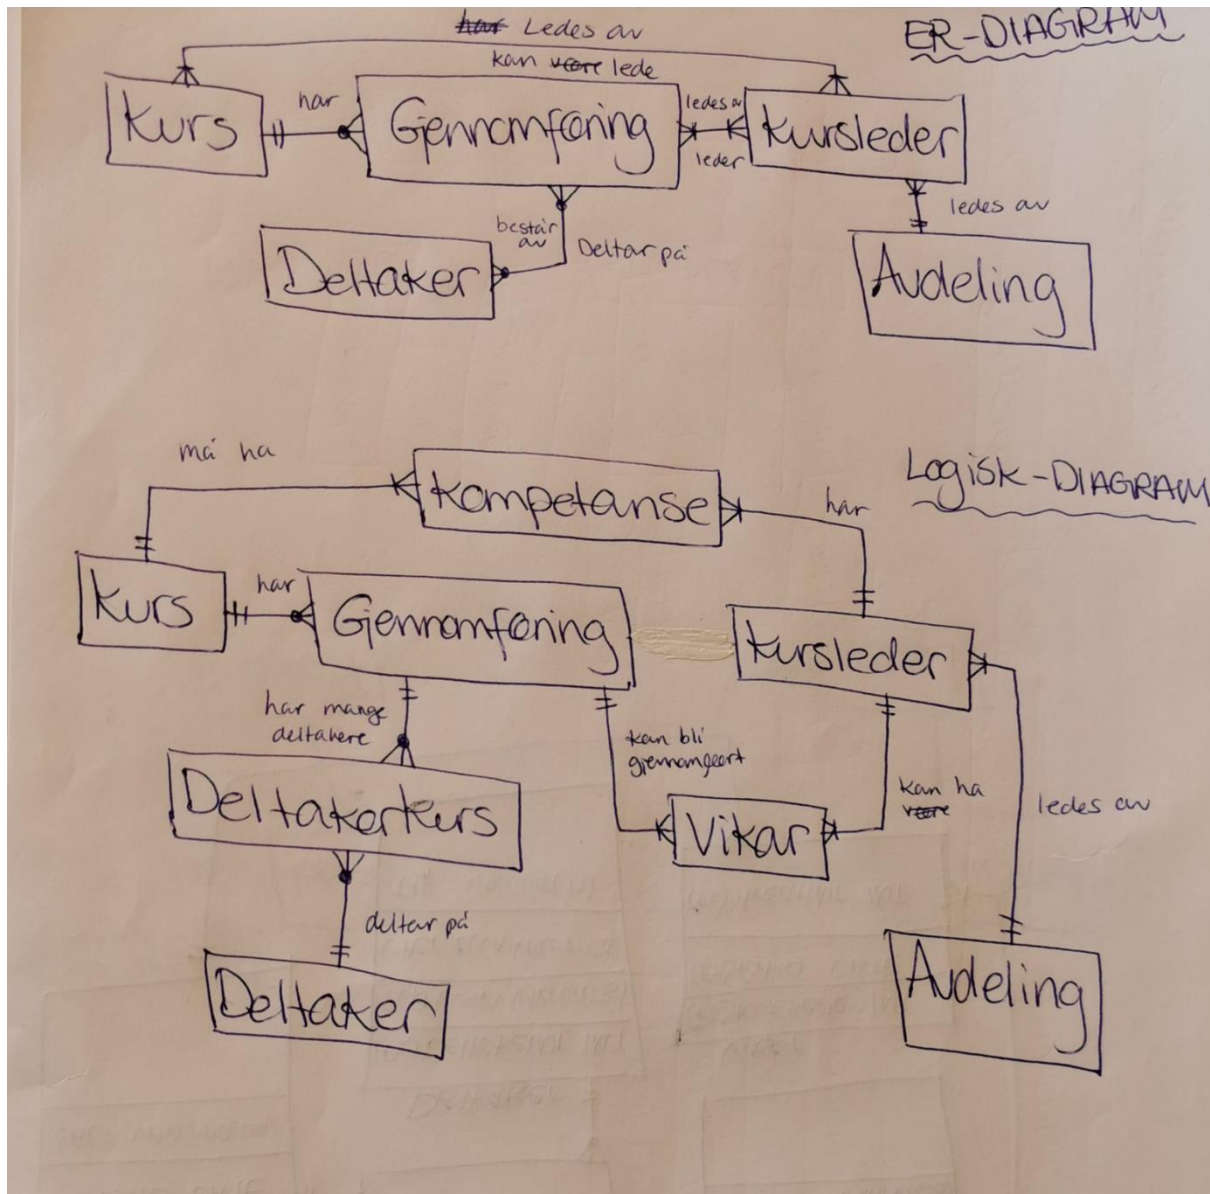 har Ledes av
ER-DIAGRAM
kan være lede
Kurs
har
Gjennomføring
ledes av
leder
Kursleder
ledes av
består
av
Deltar på
Deltaker
Avdeling
må ha
Kompetanse
har
Logisk-DIAGRAM
Kurs
har
Gjennomføring
Kursleder
har mange
deltakere
kan bli
kan ha
være
ledes av
Deltakerkurs
Vikar
deltar på
Deltaker
Avdeling